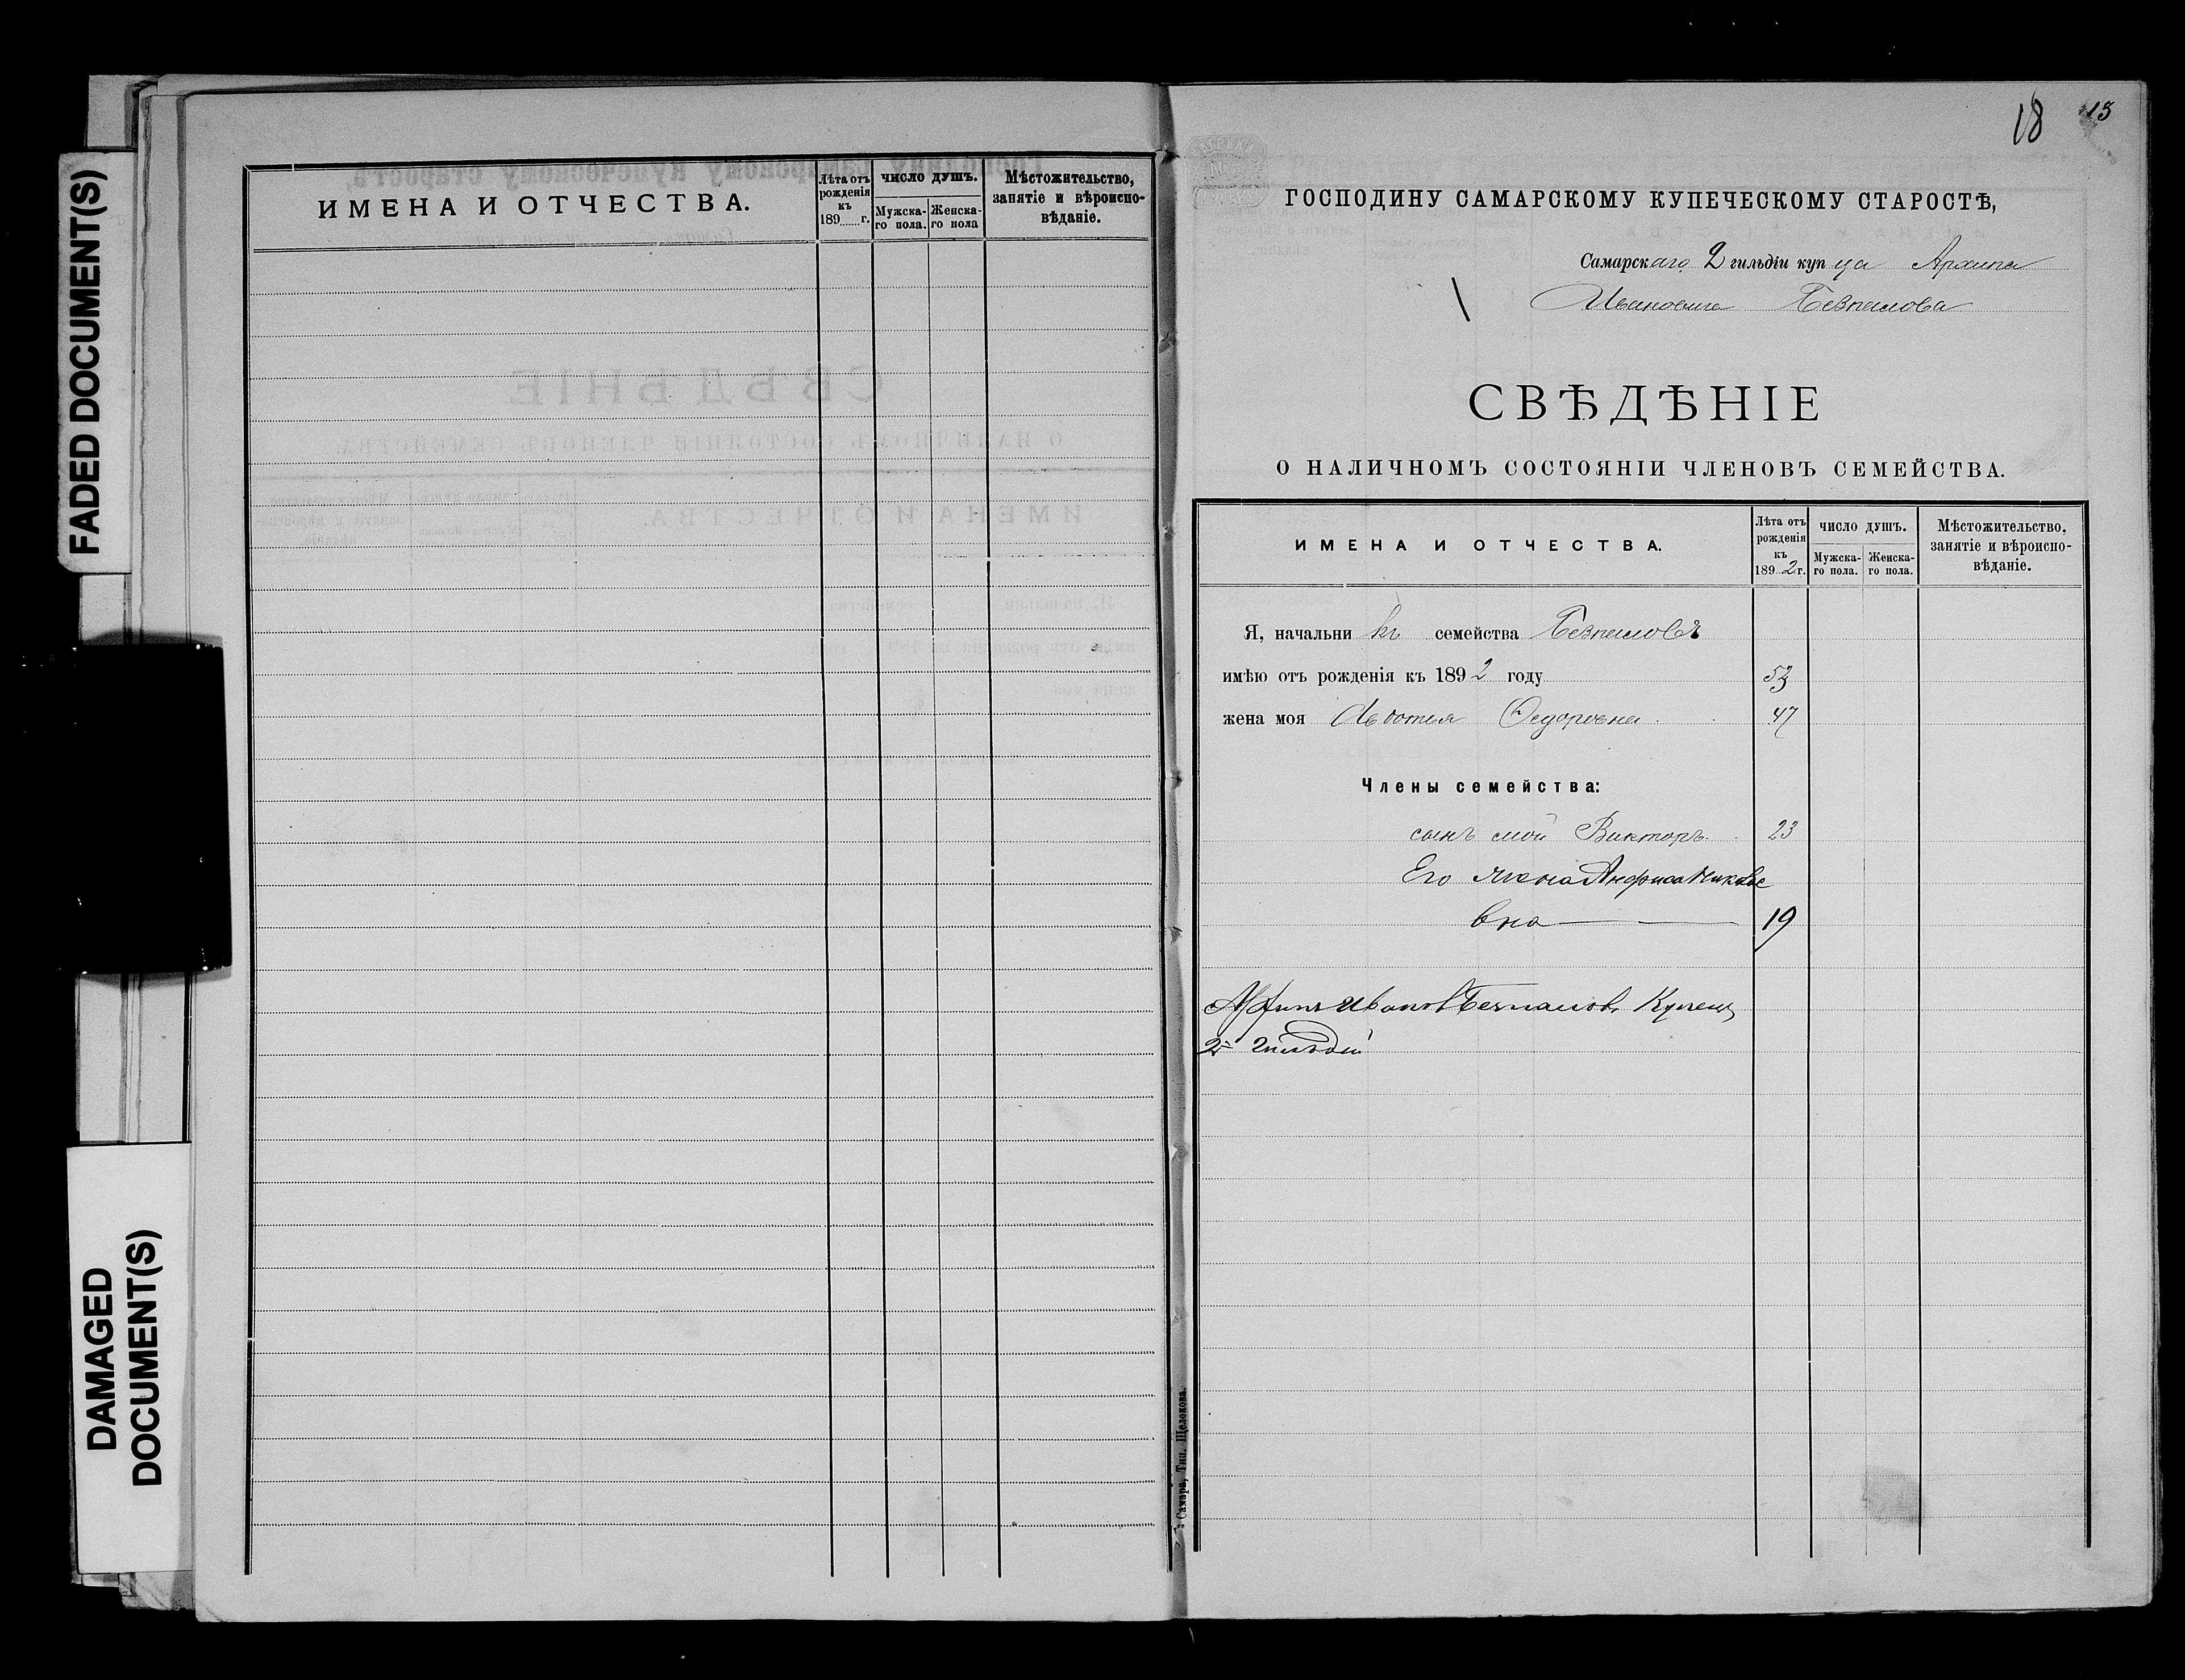 FADED DOCUMENT(S)
DAMAGED
DOCUMENT(S)
ИМЕНА И ОТЧЕСТВА.
Лѣта отъ
рожденія
къ
189 г.
ЧИСЛО ДУШЪ.
Мужска-
го пола.
Женска-
го пола
Мѣстожительство,
занятіе и вѣроиспо-
вѣданіе.
18 13
ГОСПОДИНУ САМАРСКОМУ КУПЕЧЕСКОМУ СТАРОСТѢ,
Самарскаго 2 гильдіи купца Архипа
Ивановича Безпалова
СВѢДѢНІЕ
О НАЛИЧНОМЪ СОСТОЯНІИ ЧЛЕНОВЪ СЕМЕЙСТВА.
ИМЕНА И ОТЧЕСТВА.
Лѣта отъ
рожденія
къ
1892 г.
ЧИСЛО ДУШЪ.
Мужска-
го пола.
Женска-
го пола.
Мѣстожительство,
занятіе и вѣроиспо-
вѣданіе.
Я, начальникъ семейства Безпаловъ
имѣю отъ рожденія къ 1892 году 53
жена моя Авдотья Федоровна 47
Члены семейства:
сынъ мой Викторъ 23
Его жена Анфиса Николае
вна 19
Архипъ Ивановъ Безпаловъ Купецъ
2й гильдіи
Самара, Тип. Щелокова.